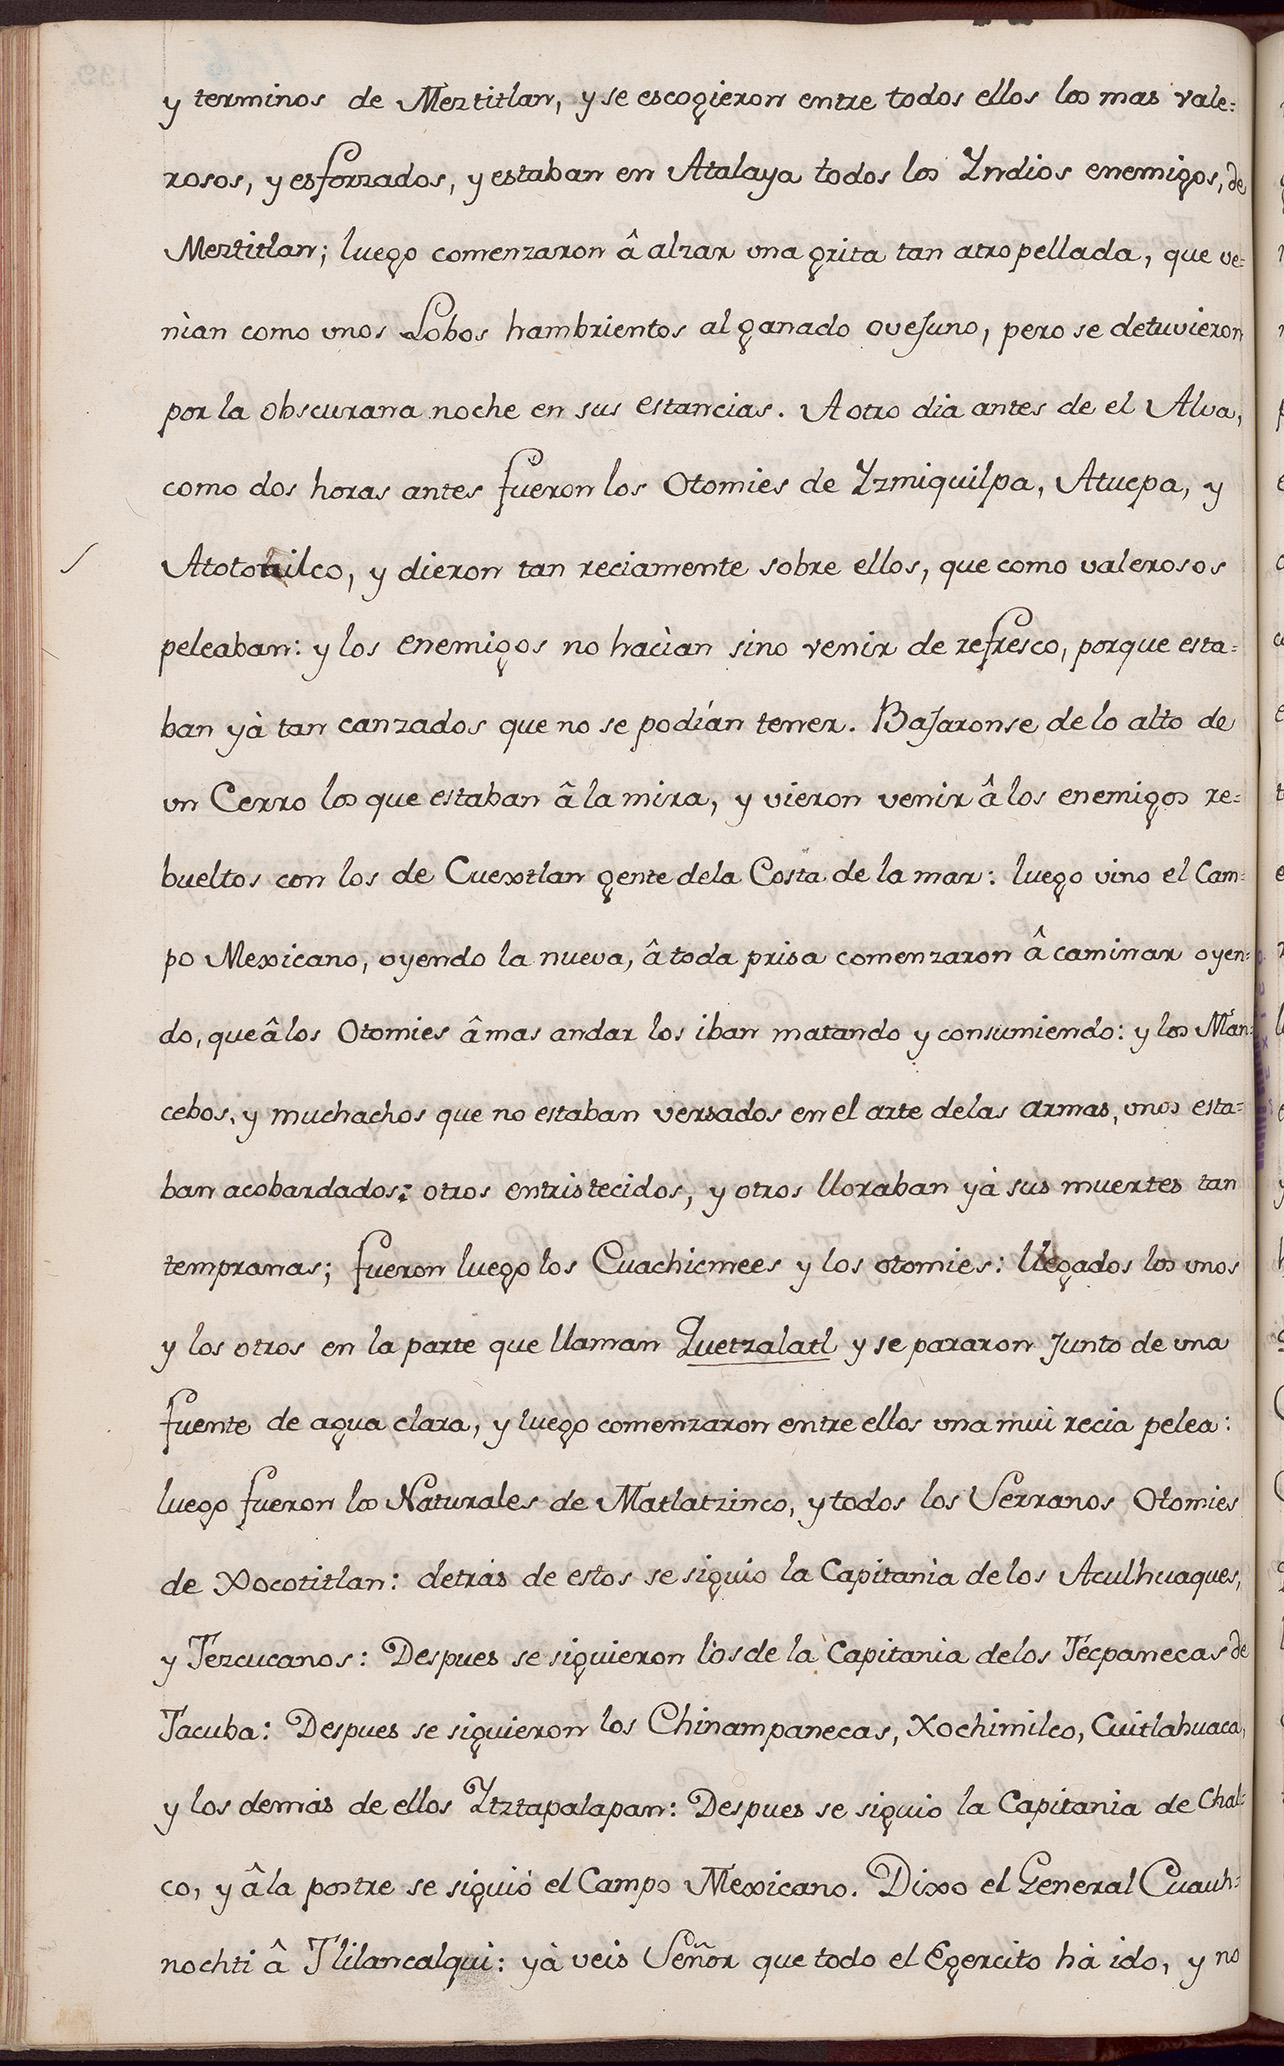 y terminos de Meztitlan, y se escogieron entre todos ellos los mas vale=
rosos, y esforzados, y estaban en Atalaya todos los Yndios enemigos, de
Meztitlan; luego comenzaron â alzar una grita tan atropellada, que ve=
nìan como unos Lobos hambrientos al ganado ovejuno, pero se detuvieron
por la obscurana noche en sus estancias. A otro dia antes de el Alva,
como dos horas antes fueron los Otomies de Yzmiquilpa, Atucpa, y
Atotonilco, y dieron tan reciamente sobre ellos, que como valerosos
peleaban: y los enemigos no hacìan sino venir de refresco, porque esta=
ban yà tan canzados que no se podían tener. Bajaronse de lo alto de
un Cerro los que estaban â la mira, y vieron venir â los enemigos re=
bueltos con los de Cuextlan gente dela Costa de la mar: luego vino el Cam=
po Mexicano, oyendo la nueva, â toda prisa comenzaron â caminar oyen=
do, que â los Otomies â mas andar los iban matando y consumiendo: y los Man=
cebos, y muchachos que no estaban versados en el arte delas armas, unos esta=
ban acobardados; otros entristecidos, y otros lloraban yà sus muertes tan
tempranas; fueron luego los Cuachicmees y los otomies: llegados los unos
y los otros en la parte que llaman Quetzalatl y se pararon junto de una
fuente de agua clara, y luego comenzaron entre ellos una mui recia pelea:
luego fueron los Naturales de Matlatzinco, y todos los Serranos Otomies
de Xocotitlan: detràs de estos se siguio la Capitanìa de los Aculhuaques,
y Tezcucanos: Despues se siguieron los de la Capitania delos Tecpanecas de
Tacuba: Despues se siguieron los Chinampanecas, Xochimilco, Cuitlahuaca,
y los demàs de ellos Ytztapalapan: Despues se siguio la Capitania de Chal=
co, y â la postre se siguiò el Campo Mexicano. Dixo el General Cuauh=
nochti â Tlilancalqui: yà veis Señor que todo el Egercito hà ido, y no